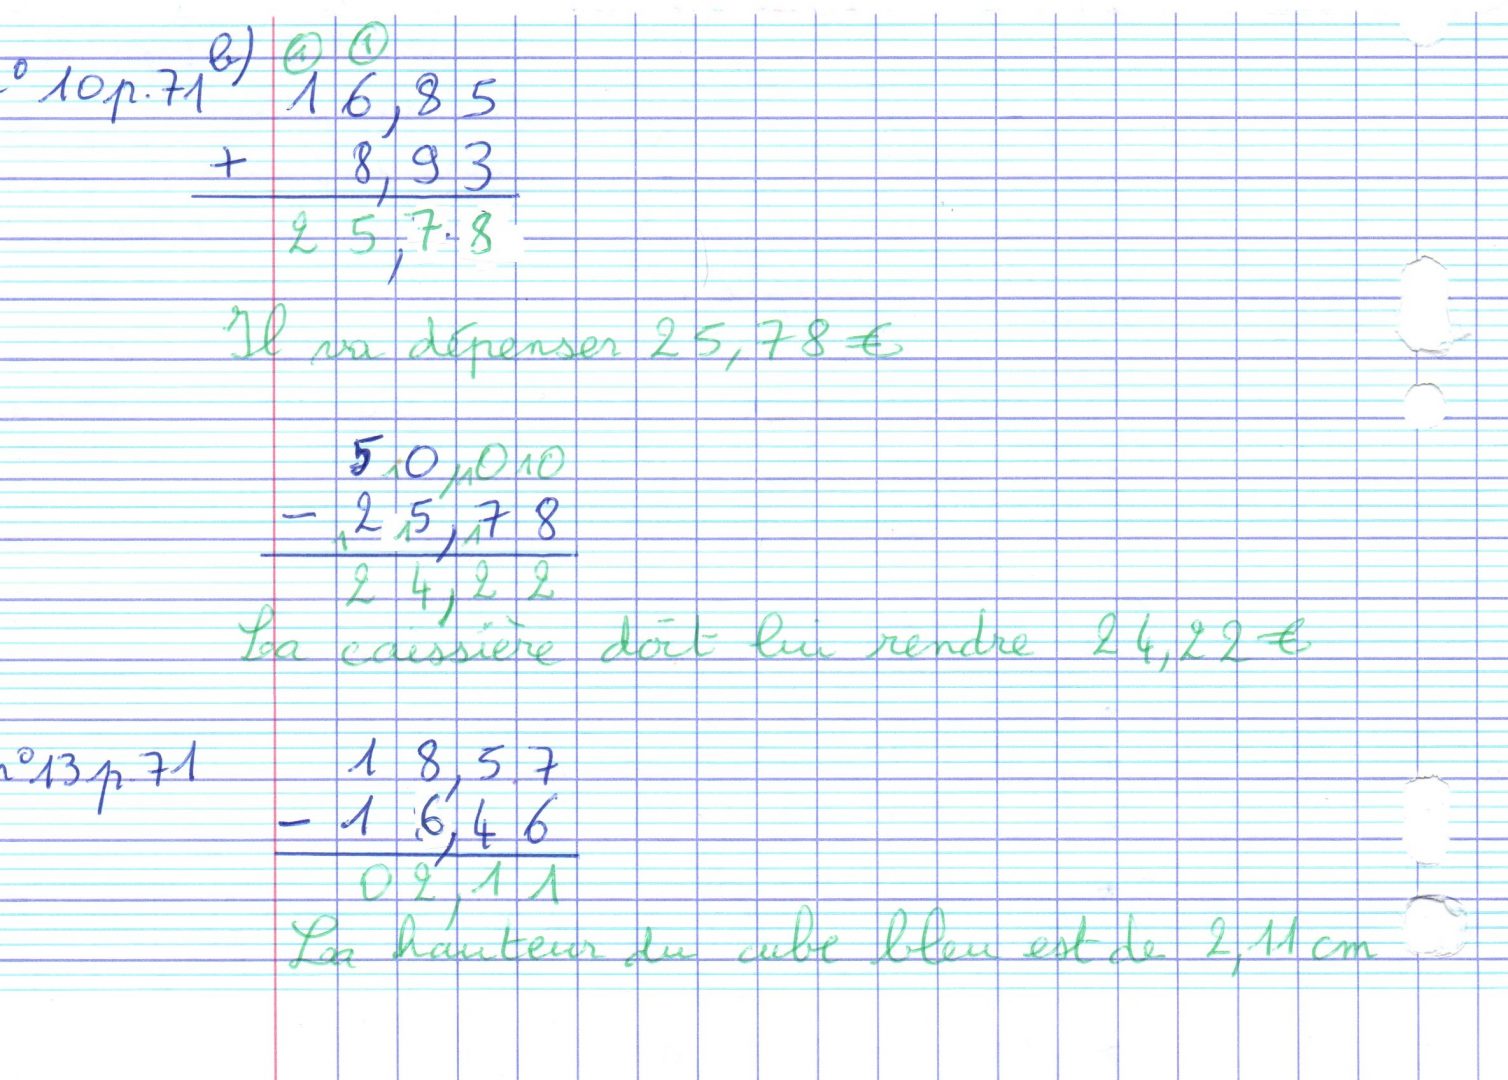 n° 10 p. 71 b) ① ①
1 6,8 5
+ 8,9 3
2 5,7 8
Il va dépenser 25,78 €
5 10,10 10
- 12 15,17 8
2 4,2 2
La caissière doit lui rendre 24,22 €
n° 13 p. 71 1 8,5 7
- 1 6,4 6
0 2,1 1
La hauteur du cube bleu est de 2,11 cm